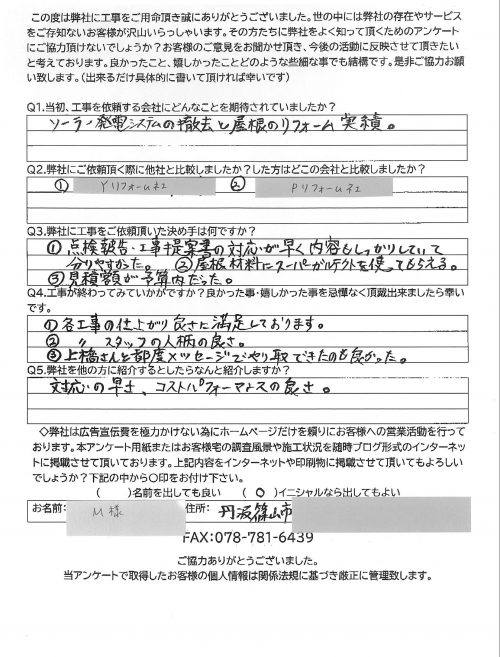 この度は弊社に工事をご用命頂き誠にありがとうございました。世の中には弊社の存在やサービス
をご存知ないお客様が沢山いらっしゃいます。その方たちに弊社をよく知って頂くためのアンケート
にご協力頂けないでしょうか？お客様のご意見をお聞かせ頂き、今後の活動に反映させて頂きたい
と考えております。良かったこと、嬉しかったことどのような些細な事でも結構です。是非ご協力お願
い致します。（出来るだけ具体的に書いて頂ければ幸いです）
Q1.当初、工事を依頼する会社にどんなことを期待されていましたか？
ソーラー発電システムの撤去と屋根のリフォーム実積。
Q2.弊社にご依頼頂く際に他社と比較しましたか？した方はどこの会社と比較しましたか？
① Yリフォーム社 ② Pリフォーム社
Q3.弊社に工事をご依頼頂いた決め手は何ですか？
① 点検報告・工事提案書の対応が早く内容もしっかりしていて
分りやすかった。 ②屋根材料にスーパーガルテクトを使ってもらえる。
③見積額が予算内だった。
Q4.工事が終わってみていかがですか？良かった事・嬉しかった事を忌憚なく頂戴出来ましたら幸い
です。
①各工事の仕上がり良さに満足しております。
② 〃 スタッフの人柄の良さ。
③上橋さんと都度メッセージでやり取できたのも良かった。
Q5.弊社を他の方に紹介するとしたらなんと紹介しますか？
対応の早さ、コストパフォーマンスの良さ。
◇弊社は広告宣伝費を極力かけない為にホームページだけを頼りにお客様への営業活動を行って
おります。本アンケート用紙またはお客様宅の調査風景や施工状況を随時ブログ形式のインターネッ
トに掲載させて頂いております。上記内容をインターネットや印刷物に掲載させて頂いてもよろしい
でしょうか？下記の中から〇印をお付け下さい。
（　）名前を出しても良い （ 〇 ）イニシャルなら出してもよい
お名前: M様 住所: 丹波篠山市
FAX:078-781-6439
ご協力ありがとうございました。
当アンケートで取得したお客様の個人情報は関係法規に基づき厳正に管理致します。